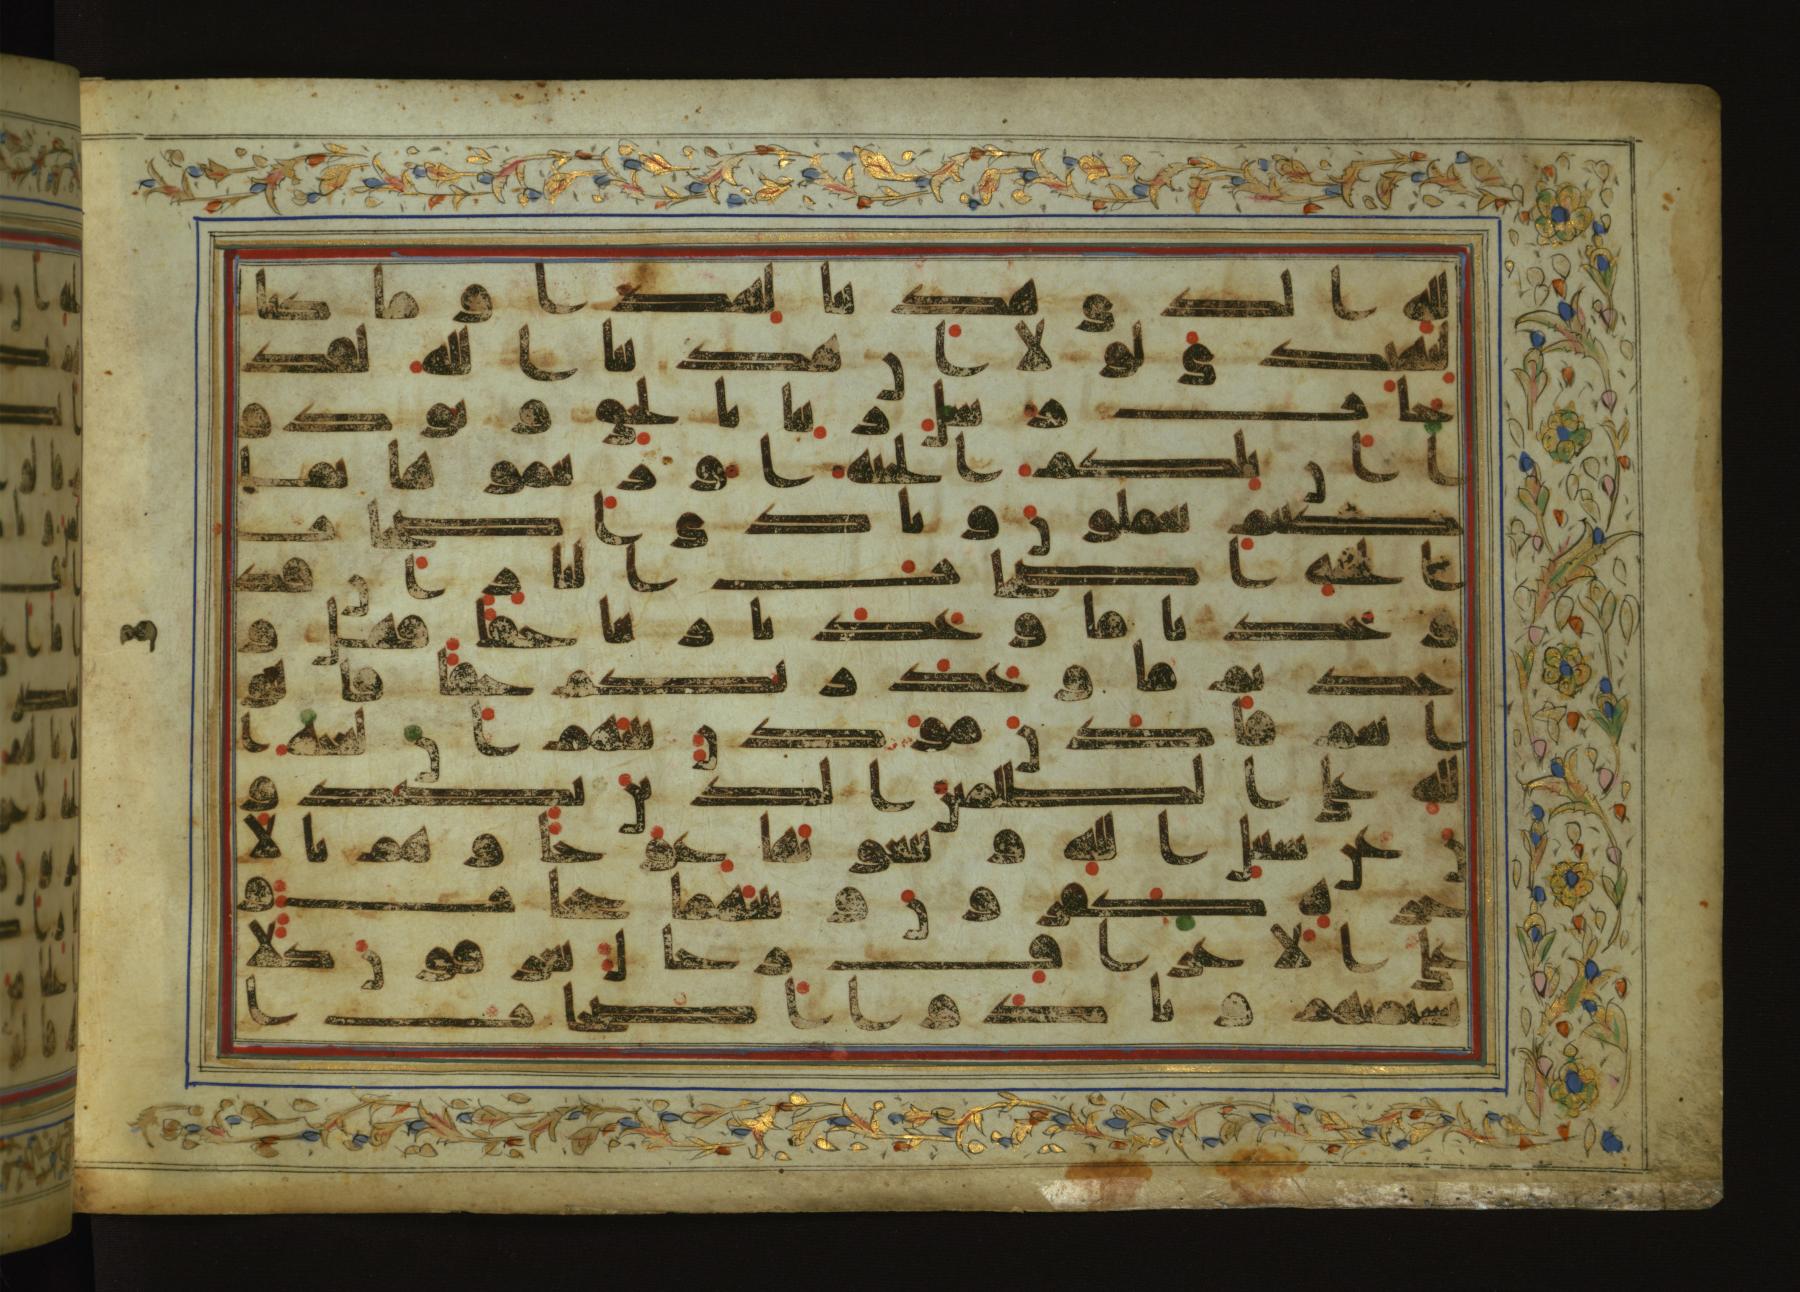 لله الذى هدىنا لهذا وما كنا
لنهتدى لولا ان هدىنا الله لقد
جات رسل ربنا بالحق ونودو
ا ان تلكم الجنة اورثتموها بما
كنتم تعملون ونادى اصحب
الجنة اصحب النار ان قد
وجدنا ما وعدنا ربنا حقا فهل و
جدتم ما وعد ربكم حقا قالو
ا نعم فاذن موذن بينهم ان لعنة ا
لله على الظلمين الذين يصدو
ن عن سبيل الله ويبغونها عوجا وهم بالا
خرة كفرون وبينهما حجاب و
على الاعراف رجال يعرفون كلا
بسيمهم ونادوا اصحب ا